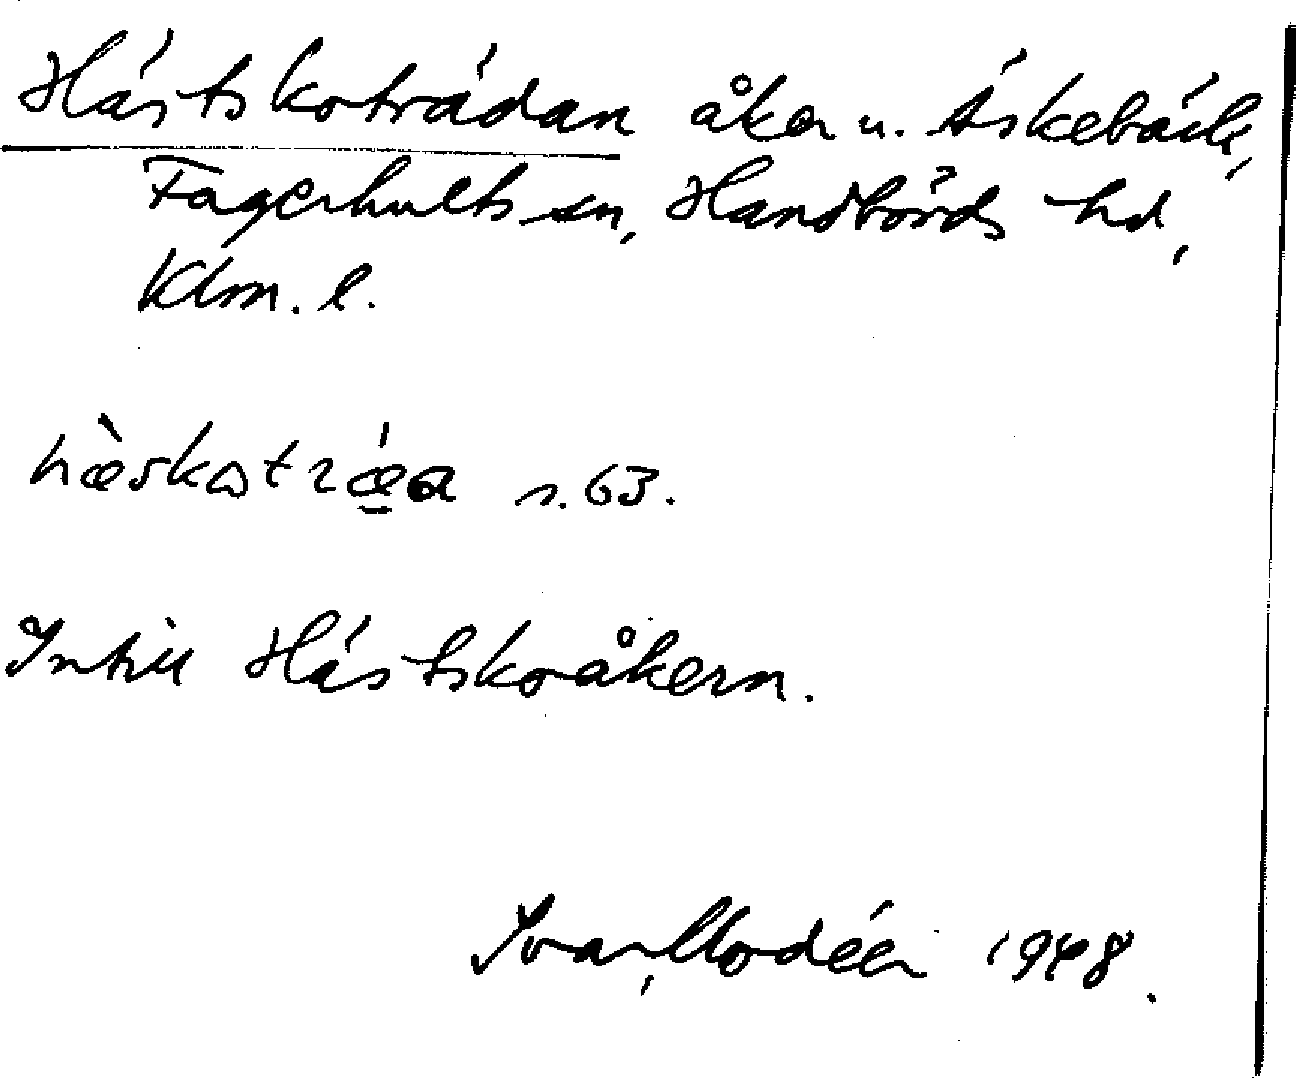 Hästskoträdan åker u. Äskebäck,
Fagerhults sn, Handbörds hd,
Klm. l.
hæ̀skotræ̀a s. 63.
Intill Hästskoåkern.
Ivar Modéer 1948.